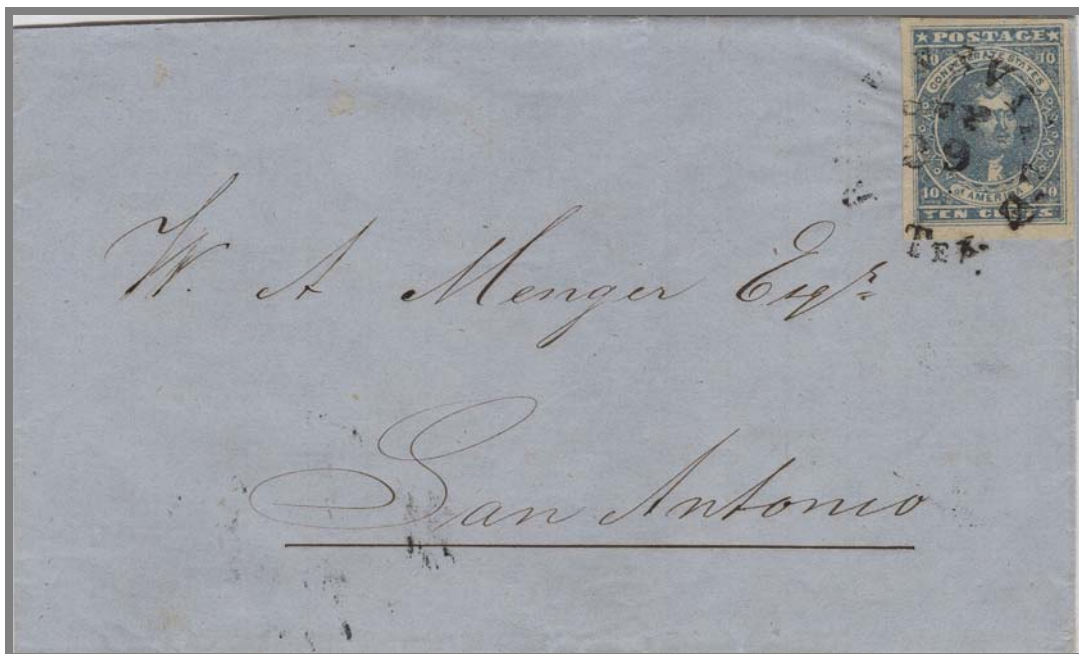 ★ POSTAGE ★
10 10
CONFEDERATE STATES
OF AMERICA
10 10
TEN CENTS
TEX.
W. A Menger Esqr.
San Antonio